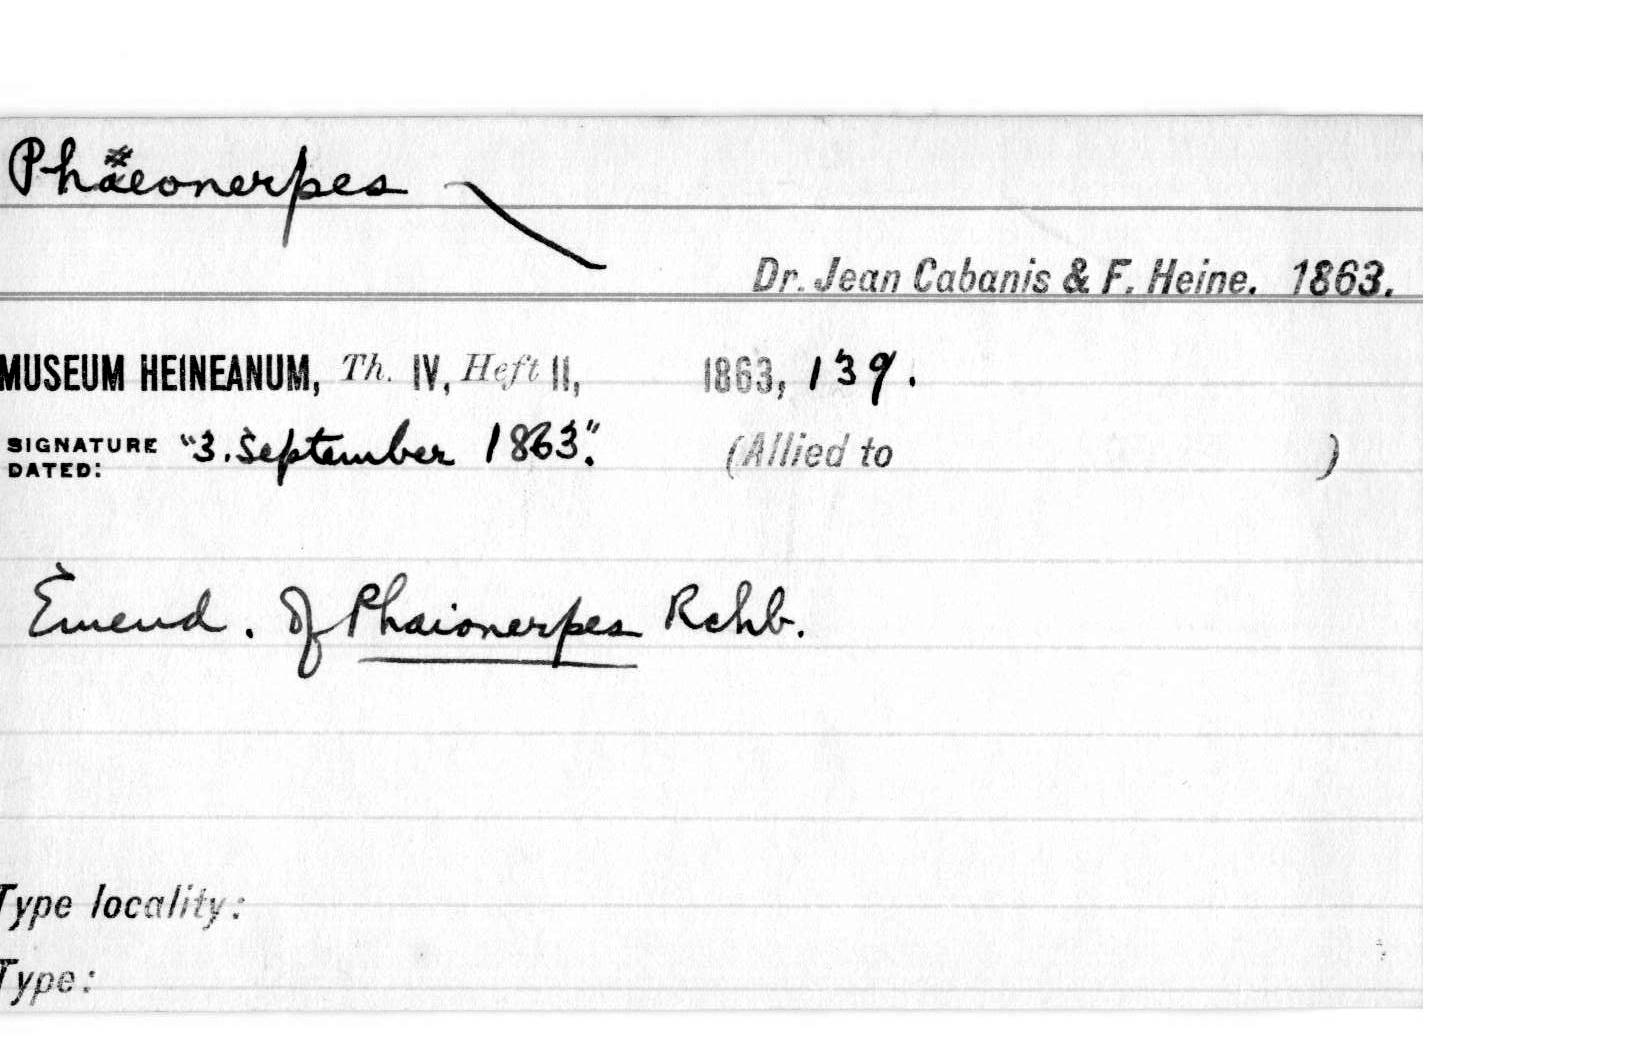 Phaeonerpes
Dr. Jean Cabanis & F. Heine. 1863.
MUSEUM HEINEANUM, Th. IV, Heft II, 1863, 139.
SIGNATURE DATED: "3. September 1863". (Allied to )
Emend. of Phaionerpes Rchb.
Type locality:
Type: